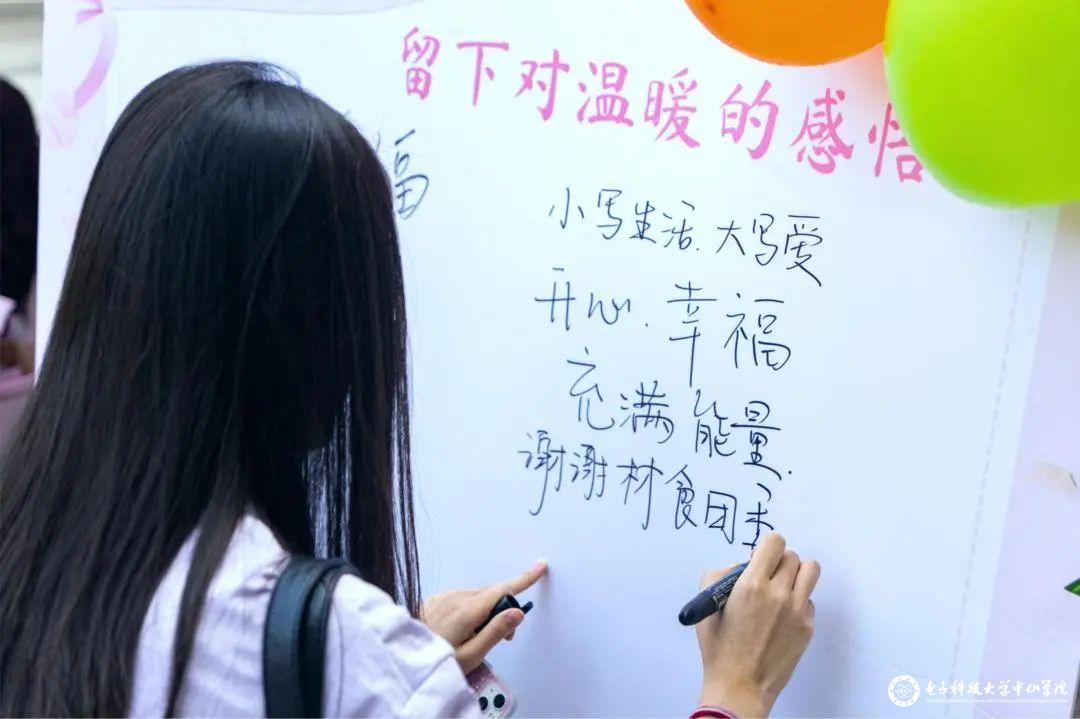 留下对温暖的感悟
福
小写生活.大写爱
开心.幸福
充满能量.
谢谢材食团委
电子科技大学中山学院